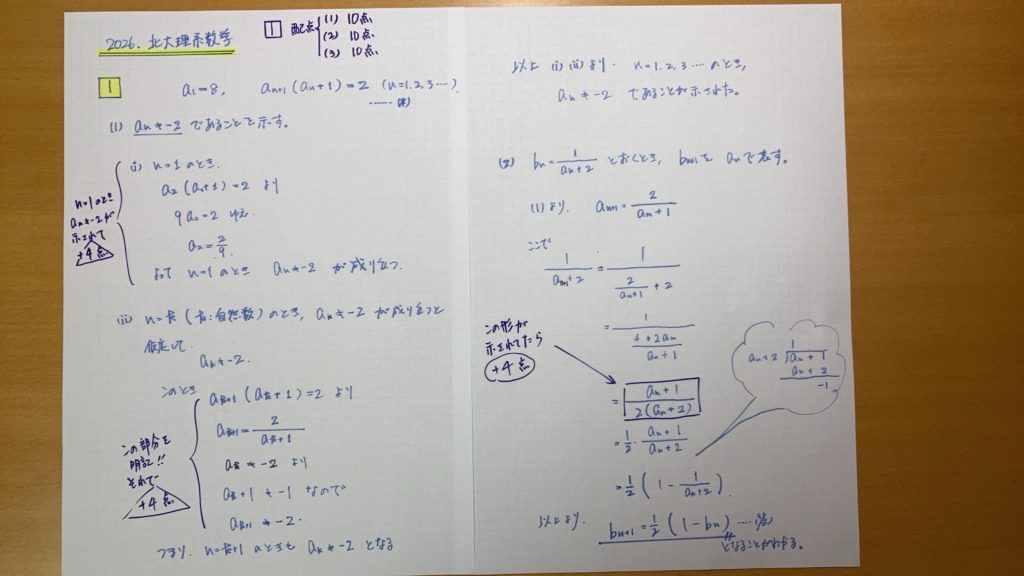 2026. 北大理系数学
1 配点 (1) 10点
(2) 10点
(3) 10点
1
a1=8, an+1(an+1)=2 (n=1,2,3…).
(1) an≠-2 であることを示す。
(i) n=1のとき.
a2(a1+1)=2 より
9a2=2 ゆえ.
a2=2/9.
よって n=1のとき an≠-2 が成り立つ.
n=1のとき
an≠-2が
示されて
+4点
(ii) n=k(k:自然数)のとき, ak≠-2 が成り立つと
仮定して.
ak≠-2.
このとき
ak+1(ak+1)=2 より
ak+1=2/(ak+1)
ak≠-2 より
ak+1≠-1 なので
ak+1≠-2.
この部分を
明記!!
それで
+4点
つまり. n=k+1のときも ak≠-2 となる
以上 (i)(ii)より. n=1.2.3…のとき,
an≠-2 であることが示された。
(2) bn=1/(an+2) とおくとき, bn+1を anで表す。
(1)より. an+1=2/(an+1)
ここで
1/(an+1+2)=1/(2/(an+1)+2)
=1/((4+2an)/(an+1))
この形が
示されてたら
+4点
=(an+1)/(2(an+2))
=1/2・(an+1)/(an+2)
=1/2(1-1/(an+2)).
1
an+2 an+1
an+2
-1
以上より. bn+1=1/2(1-bn)….(答)
となることがわかる。